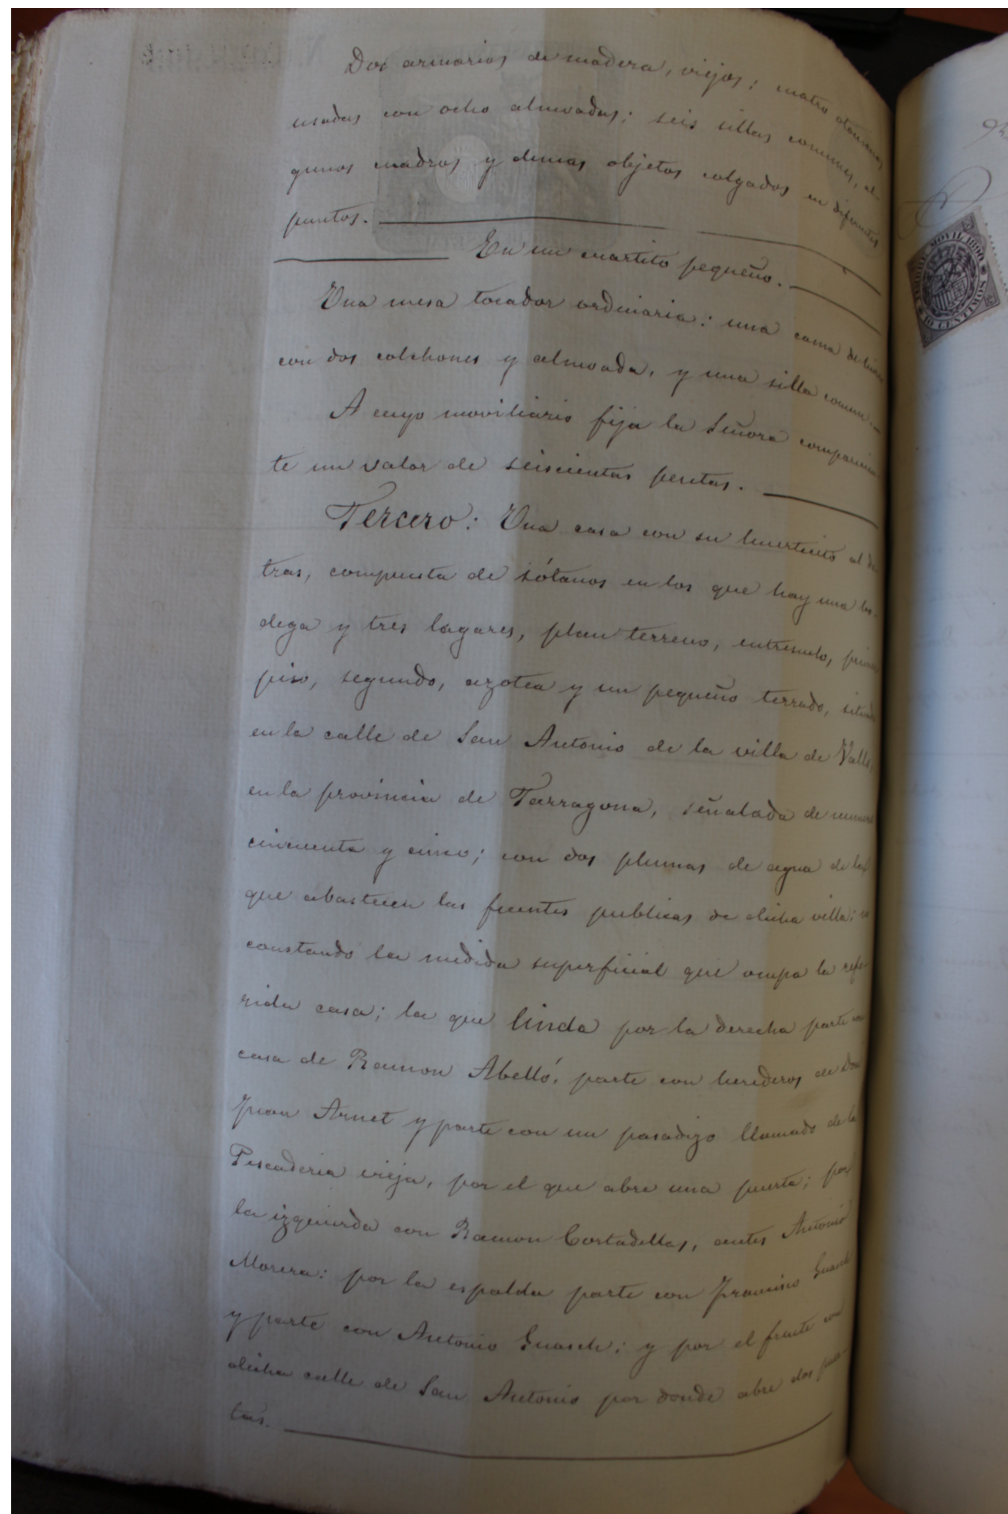 Dos armarios de madera, viejos; cuatro otomanas
usadas con ocho almoadas; seis sillas comunes, al
gunos cuadros y demas objetos colgados en diferentes
puntos.
En un cuartito pequeño.
Una mesa tocador ordinaria: una cama de
con dos colchones y almoada, y una silla comun.
A cuyo moviliario fija la Señora comparecien
te un valor de seiscientas pesetas.
Tercero: Una casa con su huertecito al de
tras, compuesta de sótanos en los que hay una bo-
dega y tres lagares, plan terreno, entresuelo, primer
piso, segundo, azotea y un pequeño terrado, situada
en la calle de San Antonio de la villa de Valls,
en la provincia de Tarragona, señalada de numero
cincuenta y cinco; con dos plumas de agua de las
que abastecen las fuentes publicas de dicha villa; no
constando la medida superficial que ocupa la refe-
rida casa; la que linda por la derecha parte con
casa de Ramon Abelló, parte con herederos de Don
Juan Arnet y parte con un pasadizo llamado de la
Pescaderia vieja, por el que abre una puerta; por
la izquierda con Ramon Cortadellas, antes Antonio
Morera: por la espalda parte con Francisco Guasch
y parte con Antonio Guasch; y por el frente con
dicha calle de San Antonio por donde abre dos puer-
tas.
MOVIL 1890
10 CENTIMOS